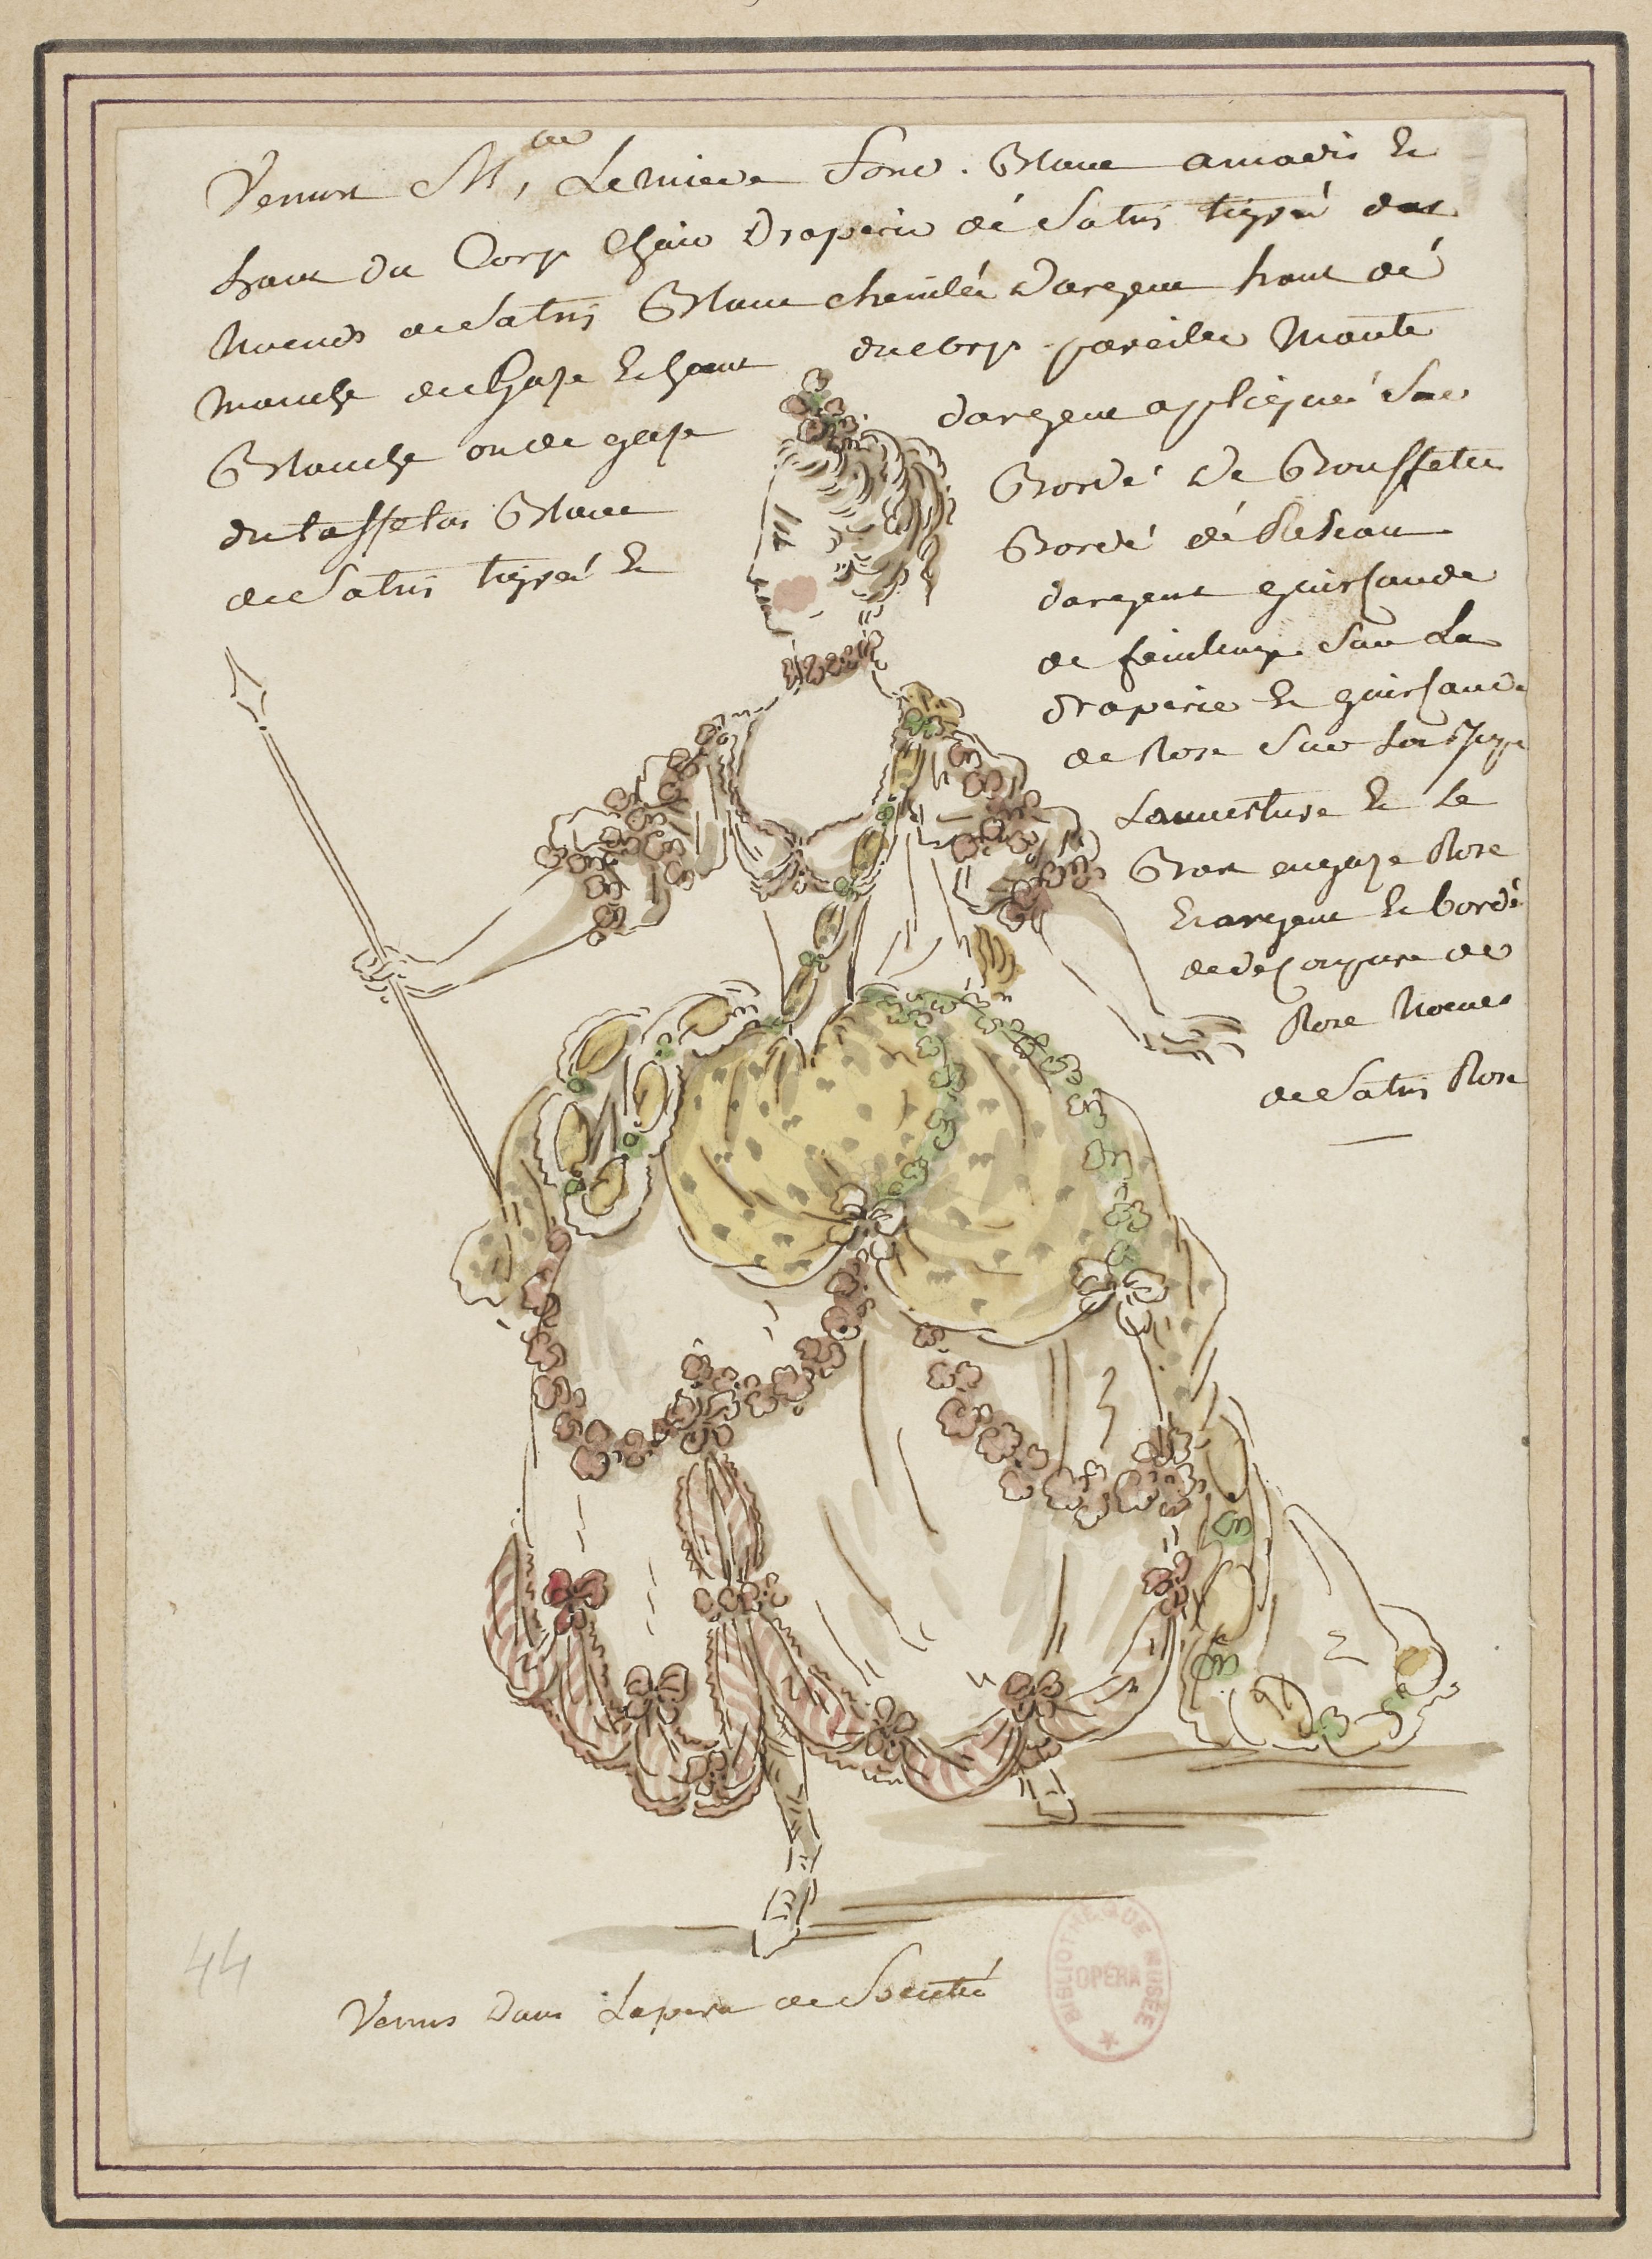 Venus Mlle, Lemiere fond. Blanc amadis et
haut du Corp Chair Draperie dé Satin tigré des
Noeuds de Satin Blanc chenilée Dargent haut dé
manche de Gaze et haut du Corp pareille Mante
Blanche ou de gaze dargent apliqué Sur
du taffetas Blanc Bordé De Bouffette
de Satin tigré et Bordé dé Reseau
dargent guirlande
de feuillage Sur La
draperie et guirlande
de Rose Sur La Jupe
Louverture et Le
Bas en gaze Rose
et argent et bordé
de decoupure de
Rose Noeuds
de Satin Rose
44
Venus Dans Lopera de Société
BIBLIOTHÈQUE MUSÉE
OPÉRA